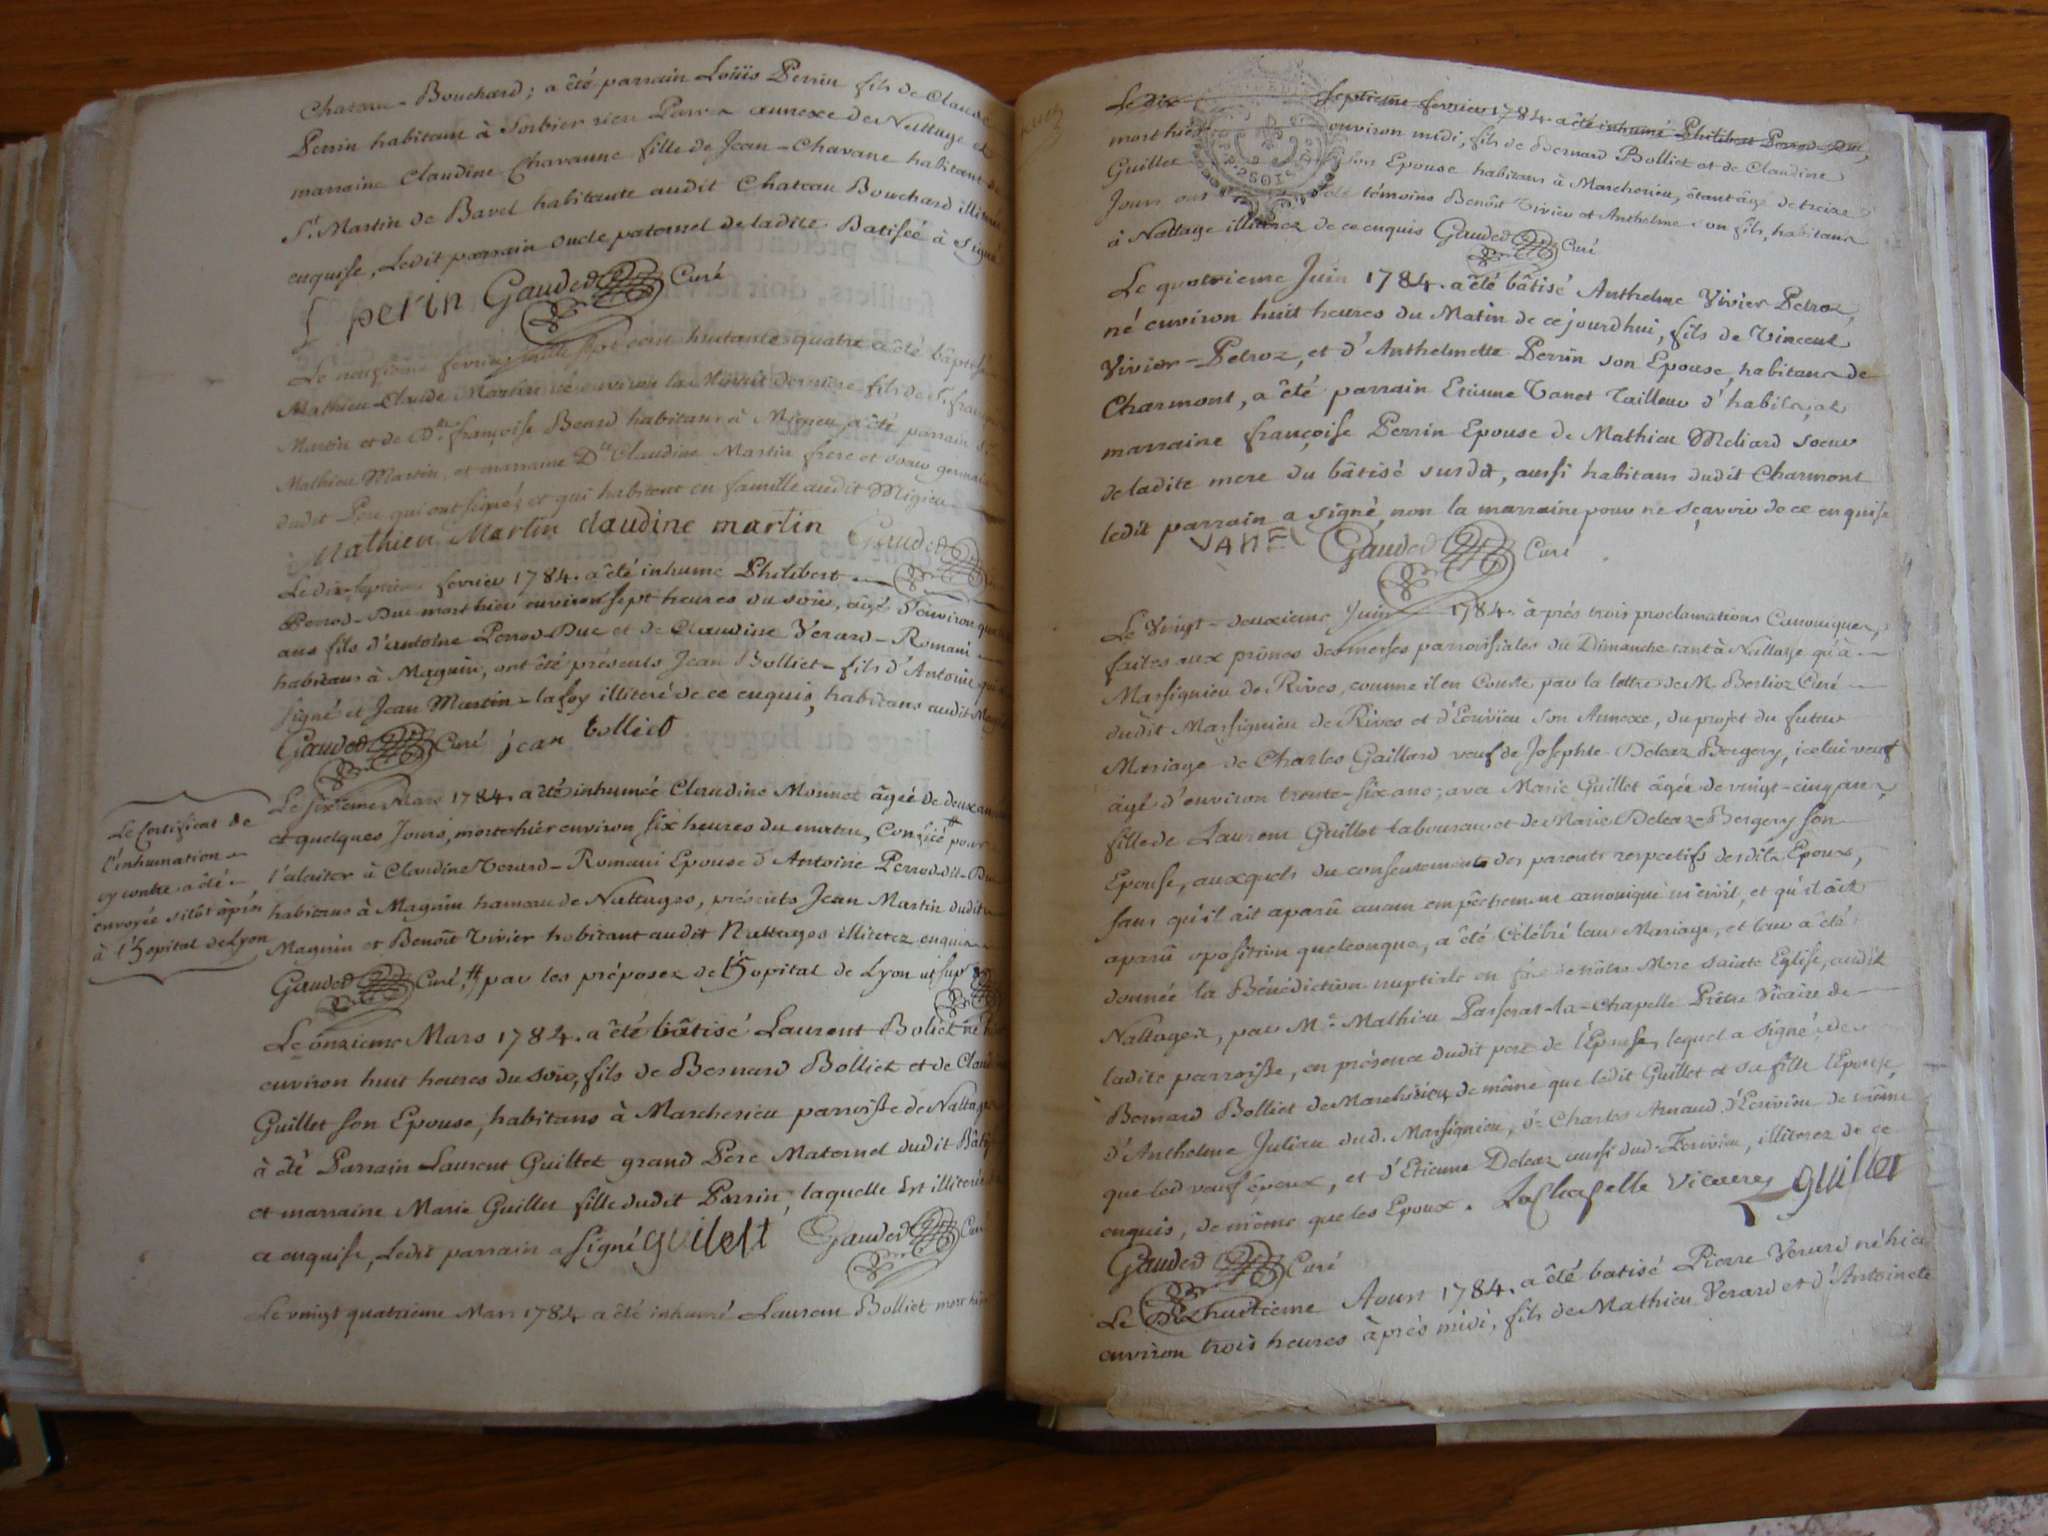 Chateau-Bouchard; a été parrain Loüis Perrin fils de Claude
Perrin habitant à Sorbier rieu Parr annexe de Nattage et
marraine Claudine Chavanne fille de Jean-Chavane habitant de
St. Martin de Bavel habitante audit Chateau Bouchard illiterée
enquise, Ledit parrain oncle paternel de ladite Batisée à signé
perin Gauded Curé
Le neufieme fevrier mille sept cent huitante quatre a été bâptisé
Mathieu-Claude Martin né environ la Minuit derniere fils de Sr. françois
Martin et de Dlle. françoise Benrd habitans à Migieu, a été parrain Sr.
Mathieu Martin, et marraine Dlle Claudine Martin frere et soeur germains
dudit Pere qui ont signéz et qui habitent en famille audit Migieu
Mathieu Martin claudine martin Gauded
Le dix-septieme fevrier 1784. a été inhumé Philibert
Perrod-Duc mort hier environ sept heures du soir, âgé d'environ quatre
ans fils d'antoine Perrod-Duc et de Claudine Verard-Romani
habitans à Magnin, ont été présents Jean Bolliet fils d'Antoine qui a
signé et Jean Martin-lafoy illiteré de ce enquis, habitans audit Magnin
Gauded Curé jean bolliet
Le sixieme Mars 1784. a été inhumée Claudine Monnet âgée de deux ans
et quelques Jours, morte hier environ six heures du matin, Confiée # pour
l'alaiter à Claudine Verard-Romani Epouse d'Antoine Perrod-dit-Duc
habitans à Magnin hameau de Nattages, présents Jean Martin dudit
Magnin et Benoît Vivier habitant audit Nattages illiterez enquis
Gauded Curé, # par les préposez de l'hopital de Lyon ut sup
Le Certificat de
l'inhumation
cy contre a été
envoyée sitôt àprès
à l'hopital de Lyon
Le onzieme Mars 1784. a été bâtisé Laurent Boliet né hier
environ huit heures du soir, fils de Bernard Bolliet et de Claudine
Guillet son Epouse, habitans à Marcherieu parroisse de Nattages
à été Parrain Laurent Guillet grand Pere Maternel dudit Bâtisé
et marraine Marie Guillet fille dudit Parrin, laquelle est illiterée de
ce enquise, Ledit parrain a signé guilelt Gauded Curé
Le vingt quatrieme Mars 1784 a été inhumé Laurent Bolliet mort hier
Le dix septieme fevrier 1784. a été inhumé Philibert Perrod-Duc,
mort hier environ midi, fils de Bernard Bolliet et de Claudine
Guillet son Epouse habitans à Marcherieu, étant âgé de treize
Jours ont été témoins Benoît Vivier et Anthelme son fils, habitans
à Nattage illiterez de ce enquis Gauded Curé
Le quatrieme Juin 1784. a été bâtisé Anthelme Vivier Petroz,
né environ huit heures du Matin de ce jourdhui, fils de Vincent
Vivier-Petroz, et d'Anthelmette Perrin son Epouse, habitans de
Charmont, a été parrain Etienne Vanet Tailleur d'habits, et
marraine françoise Perrin Epouse de Mathieu Meliard soeur
de ladite mere du bâtisé susdit, aussi habitans dudit Charmont
ledit parrain a signé, non la marraine pour ne sçavoir de ce enquise
VANEL Gauded Curé
Le Vingt-deuxieme Juin 1784. àprés trois proclamations Canoniques,
faites aux prônes des messes parroissiales du Dimanche tant à Nattage qu'à
Massignieu de Rives, comme il en Conste par la lettre de M. Berlioz Curé
dudit Massignieu de Rives et d'Ecrivieu son Annexe, du projet du futur
Mariage de Charles Gaillard veuf de Josephte Deleaz Bergery, icelui veuf
âgé d'environ trente-six ans; avec Marie Guillet âgée de vingt-cinq ans,
fille de Laurent Guillet laboureur et de Marie Deleaz-Bergery son
Epouse, auxquels du consentement des parents respectifs desdits Epoux,
sans qu'il ait aparû aucun empêchement canonique ni civil, et qu'il ait
aparû oposition quelconque, a été Célébré leur Mariage, et leur a été
donnée la Bénédiction nuptiale en face de nôtre Mere sainte Eglise, audit
Nattages, par Mre. Mathieu Passerat-la-Chapelle Prêtre Vicaire de
ladite parroisse, en présence dudit pere de l'Epouse, lequel a signé, de
Bernard Bolliet de Marcherieu, de même que ledit Guillet et sa fille l'épouse,
d'Anthelme Julian dud. Massignieu, de Charles Arnaud d'Ecrivieu de même
que led veuf époux, et d'Etienne Deleaz aussi dud. Ecrivieu, illiterez de ce
enquis, de même que les Epoux. LaChapelle Vicaire, guillet
Gauded Curé
Le Dixhuitieme Aoust 1784. a été batisé Pierre Verard né hier
environ trois heures àprés midi, fils de Mathieu Verard et d'Antoinete